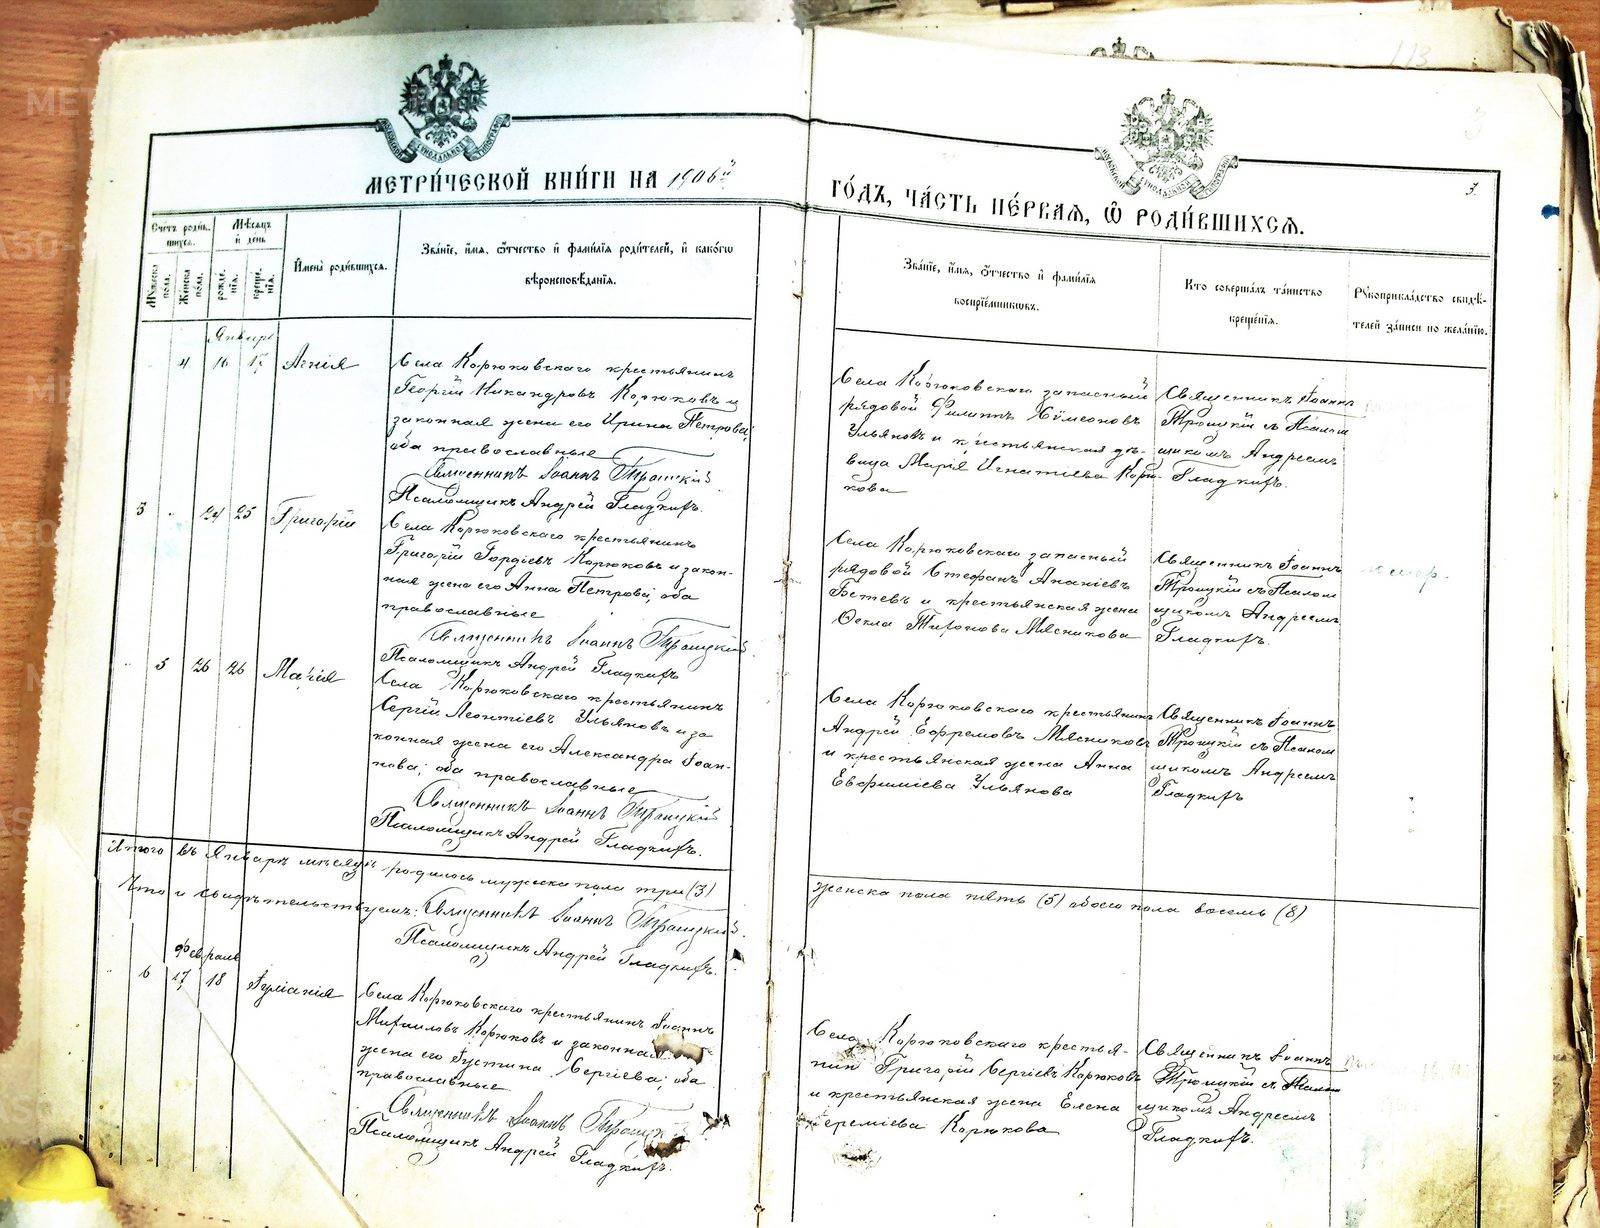 МЕТРИ́ЧЕСКОЙ КНИ́ГИ НА 1906й
ГО́ДЪ, ЧА́СТЬ ПЕ́РВАЯ, Ѡ РОДИ́ВШИХСЯ.
3.
Счетъ роди́в-
шихся.
Мѣсяцъ
и день
Мꙋжеска
пола.
Женска
пола.
рожде-
нїя.
креще-
нїя.
Имена̀ роди́вшихся.
Зва́нїе, и́мя, ѻ́тчество и фами́лїя роди́телей, и како́гѡ
вѣроисповѣ́данїя.
Зва́нїе, и́мя, ѻ́тчество и фами́лїя
воспрїе́мникѡвъ.
Кто соверша́лъ та́инство
креще́нїя.
Рꙋкоприкла́дство свидѣ́-
телей за́писи по жела́нїю.
Января
4 16 17 Агнія
Села Корюковскаго крестьянинъ
Георгій Никандровъ Корюковъ и
законная жена его Ирина Петрова;
оба православные
Священникъ Іоаннъ Троицкій
Псаломщикъ Андрей Гладкихъ.
Села Корюковскаго запасный
рядовой Филиппъ Сѵмеоновъ
Ульяновъ и крестьянская дѣ-
вица Марія Игнатіева Корю-
кова
Священникъ Іоаннъ
Троицкій съ Псалом
щикомъ Андреемъ
Гладкихъ.
3 24 25 Григорій
Села Корюковскаго крестьянинъ
Григорій Гордіевъ Корюковъ и закон-
ная жена его Анна Петрова; оба
православные
Священникъ Іоаннъ Троицкій
Псаломщикъ Андрей Гладкихъ
Села Корюковскаго запасный
рядовой Стефанъ Ананіевъ
Бетевъ и крестьянская жена
Ѳекла Тиронова Мясникова
Священникъ Іоаннъ
Троицкій съ Псалом
щикомъ Андреемъ
Гладкихъ.
5 26 26 Марія
Села Корюковскаго крестьянинъ
Сергій Леонтіевъ Ульяновъ и за
конная жена его Александра Іоан-
нова; оба православные
Священникъ Іоаннъ Троицкій
Псаломщикъ Андрей Гладкихъ.
Села Корюковскаго крестьянинъ
Андрей Ефремовъ Мясниковъ
и крестьянская жена Анна
Евфиміева Ульянова
Священникъ Іоаннъ
Троицкій съ Псалом
щикомъ Андреемъ
Гладкихъ
Итого въ Январѣ мѣсяцѣ родилось мужеска пола три (3)
женска пола пять (5) обоего пола восемь (8)
Что и свидѣтельствуемъ: Священникъ Іоаннъ Троицкій.
Псаломщикъ Андрей Гладкихъ.
Февраль
6 17 18 Іуліанія
Села Корюковскаго крестьянинъ Іоаннъ
Михаиловъ Корюковъ и законная
жена его Іустина Сергіева; оба
православные
Священникъ Іоаннъ Троицкій
Псаломщикъ Андрей Гладкихъ.
Села Корюковскаго крестья-
нин Григорій Сергіевъ Корюковъ
и крестьянская жена Елена
Іереміева Корюкова
Священникъ Іоаннъ
Троицкій съ Псалом
щикомъ Андреемъ
Гладкихъ.